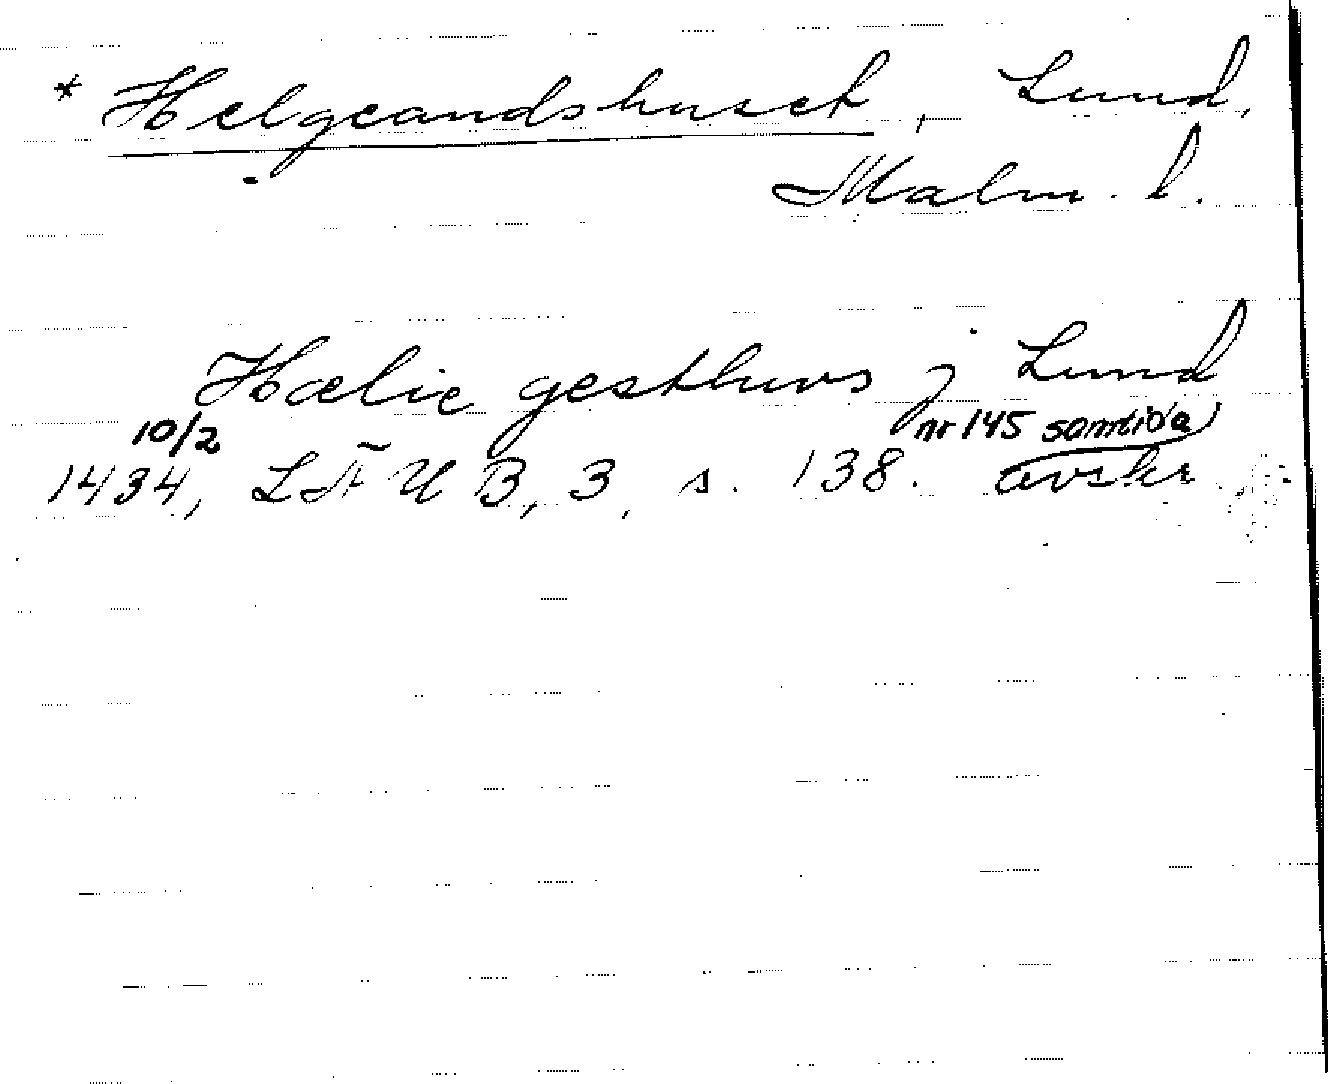 * Helgeandshuset, Lund,
Malm. l.
Hælie gesthws j Lund
10/2 nr 145 samtida
1434, LÄUB, 3, s. 138. avskr